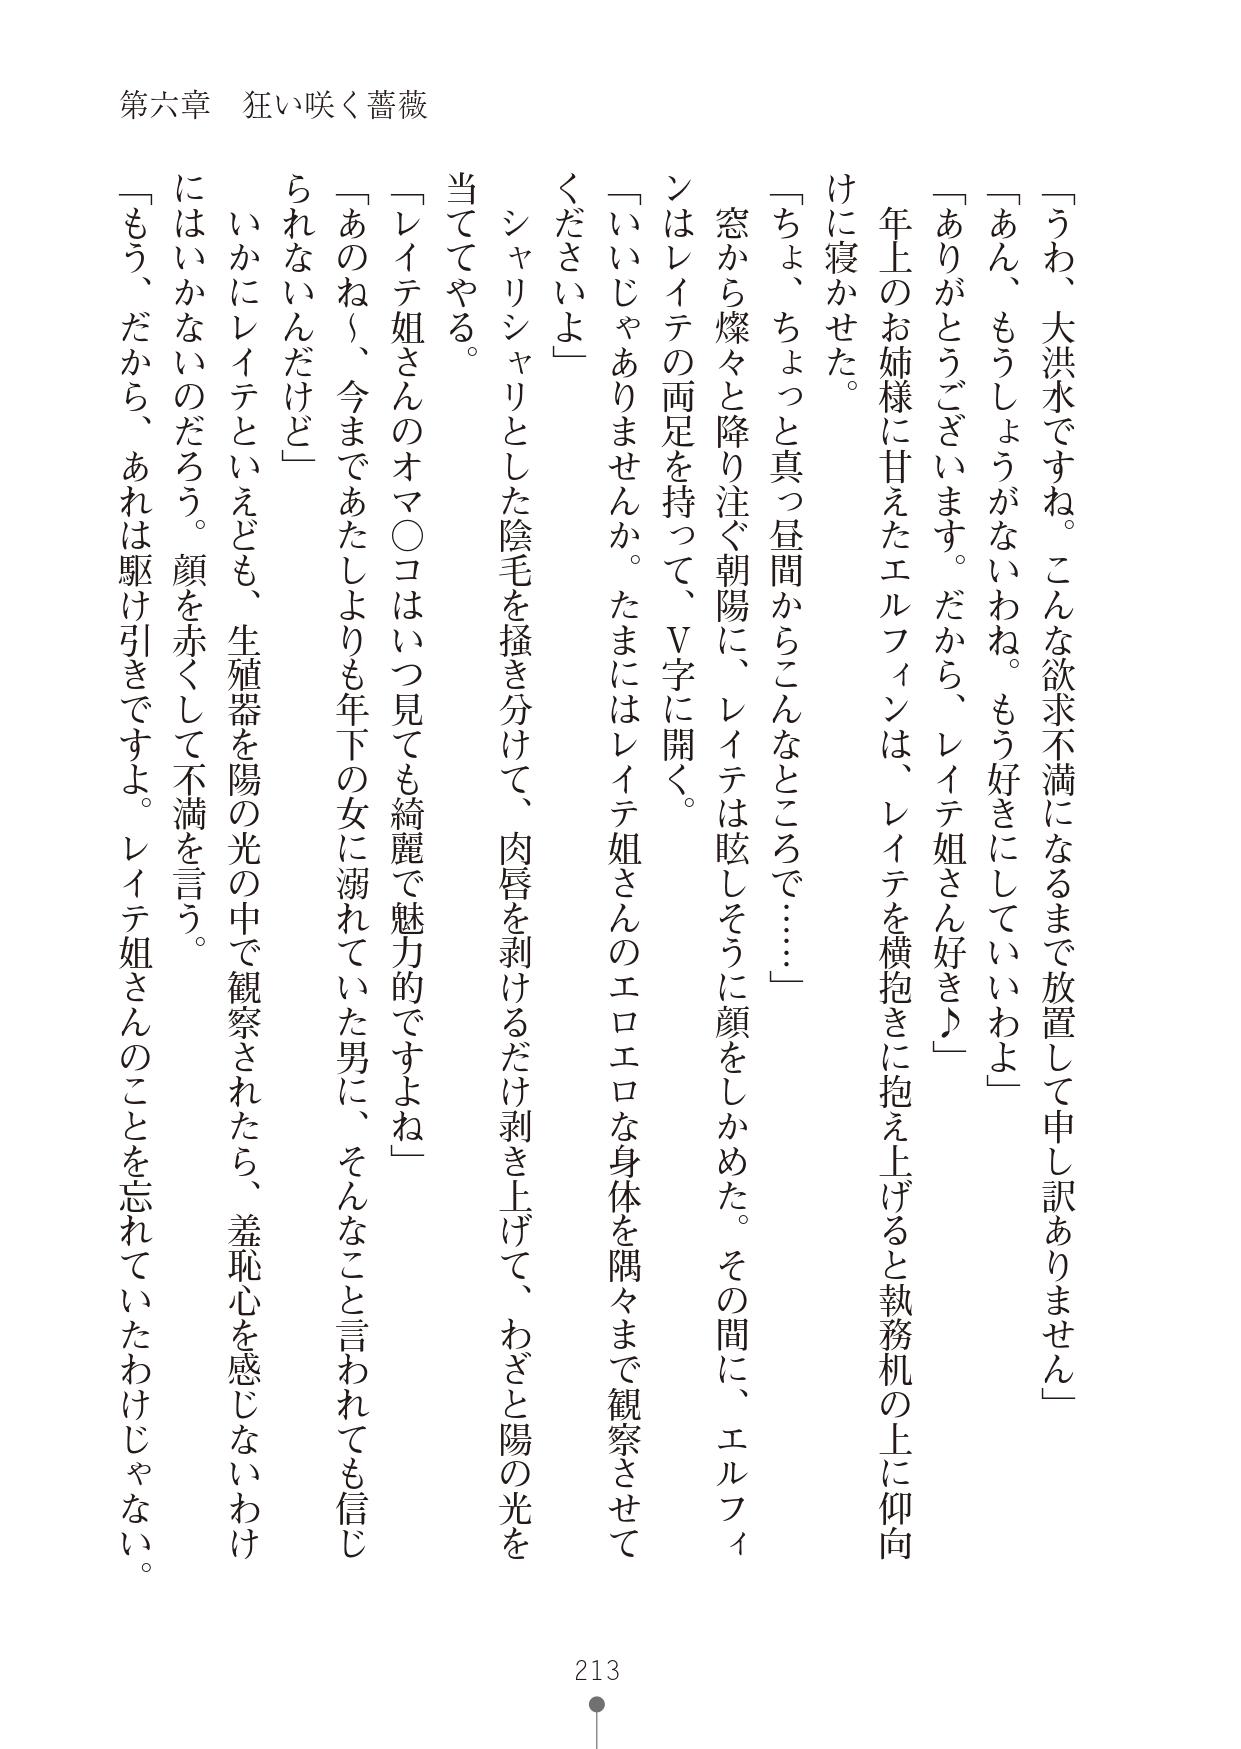 第六章　狂い咲く薔薇
「うわ、大洪水ですね。こんな欲求不満になるまで放置して申し訳ありません」
「あん、もうしょうがないわね。もう好きにしていいわよ」
「ありがとうございます。だから、レイテ姐さん好き♪」
　年上のお姉様に甘えたエルフィンは、レイテを横抱きに抱え上げると執務机の上に仰向
けに寝かせた。
「ちょ、ちょっと真っ昼間からこんなところで……」
　窓から燦々と降り注ぐ朝陽に、レイテは眩しそうに顔をしかめた。その間に、エルフィ
ンはレイテの両足を持って、Ｖ字に開く。
「いいじゃありませんか。たまにはレイテ姐さんのエロエロな身体を隅々まで観察させて
くださいよ」
　シャリシャリとした陰毛を掻き分けて、肉唇を剥けるだけ剥き上げて、わざと陽の光を
当ててやる。
「レイテ姐さんのオマ〇コはいつ見ても綺麗で魅力的ですよね」
「あのね〜、今まであたしよりも年下の女に溺れていた男に、そんなこと言われても信じ
られないんだけど」
　いかにレイテといえども、生殖器を陽の光の中で観察されたら、羞恥心を感じないわけ
にはいかないのだろう。顔を赤くして不満を言う。
「もう、だから、あれは駆け引きですよ。レイテ姐さんのことを忘れていたわけじゃない。
213